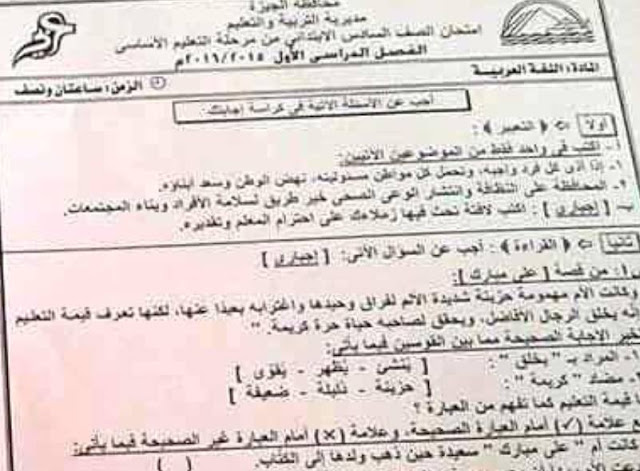 محافظة الجيزة
مديرية التربية والتعليم
امتحان الصف السادس الابتدائي من مرحلة التعليم الأساسى
الفصل الدراسى الأول ٢٠١٥/٢٠١٦م
المادة: اللغة العربية
الزمن: ساعتان ونصف
أجب عن الأسئلة الآتية فى كراسة إجابتك:
أولاً ⇐ ﴿ التعبير ﴾ :
أ- اكتب فى واحد فقط من الموضوعين الآتيين:
١- إذا أدى كل فرد واجبه، وتحمل كل مواطن مسئوليته، نهض الوطن وسعد أبناؤه.
٢- المحافظة على النظافة وانتشار الوعى الصحى خير طريق لسلامة الأفراد وبناء المجتمعات.
ب- [ إجبارى ] : اكتب لافتة تحث فيها زملاءك على احترام المعلم وتقديره.
ثانياً ⇐ ﴿ القراءة ﴾ : أجب عن السؤال الآتى: [ إجبارى ]
من قصة [ على مبارك ]:
وكانت الأم مهمومة حزينة شديدة الألم لفراق وحيدها واغترابه بعيدًا عنها، لكنها تعرف قيمة التعليم
يخلق الرجال الأفاضل، ويحقق لصاحبه حياة حرة كريمة. "
خير الإجابة الصحيحة مما بين القوسين فيما يأتى:
- المراد بـ " يخلق " : [ يُنشئ - يُظهر - يُقوّى ]
- مضاد " كريمة " : [ حزينة - ذليلة - ضعيفة ]
قيمة التعليم كما تفهم من العبارة ؟
علامة (✓) أمام العبارة الصحيحة، وعلامة (×) أمام العبارة غير الصحيحة فيما يأتى:
كانت أم " على مبارك " سعيدة حين ذهب ولدها إلى الكُتاب. ( )